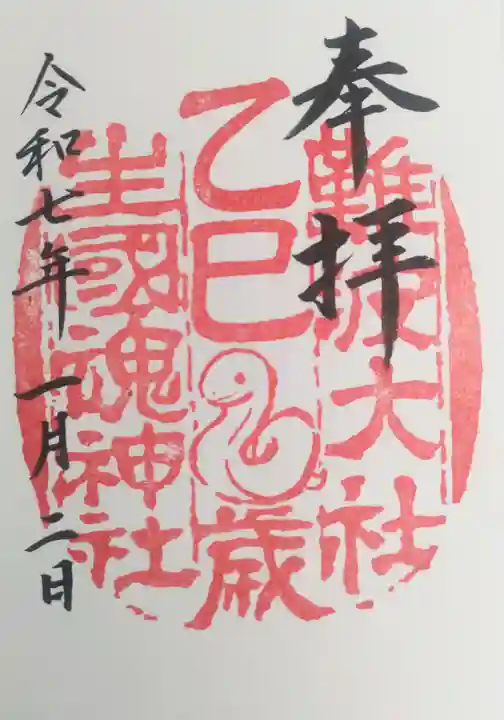 奉拝
難波大社
乙巳歳
生國魂神社
令和七年一月二日